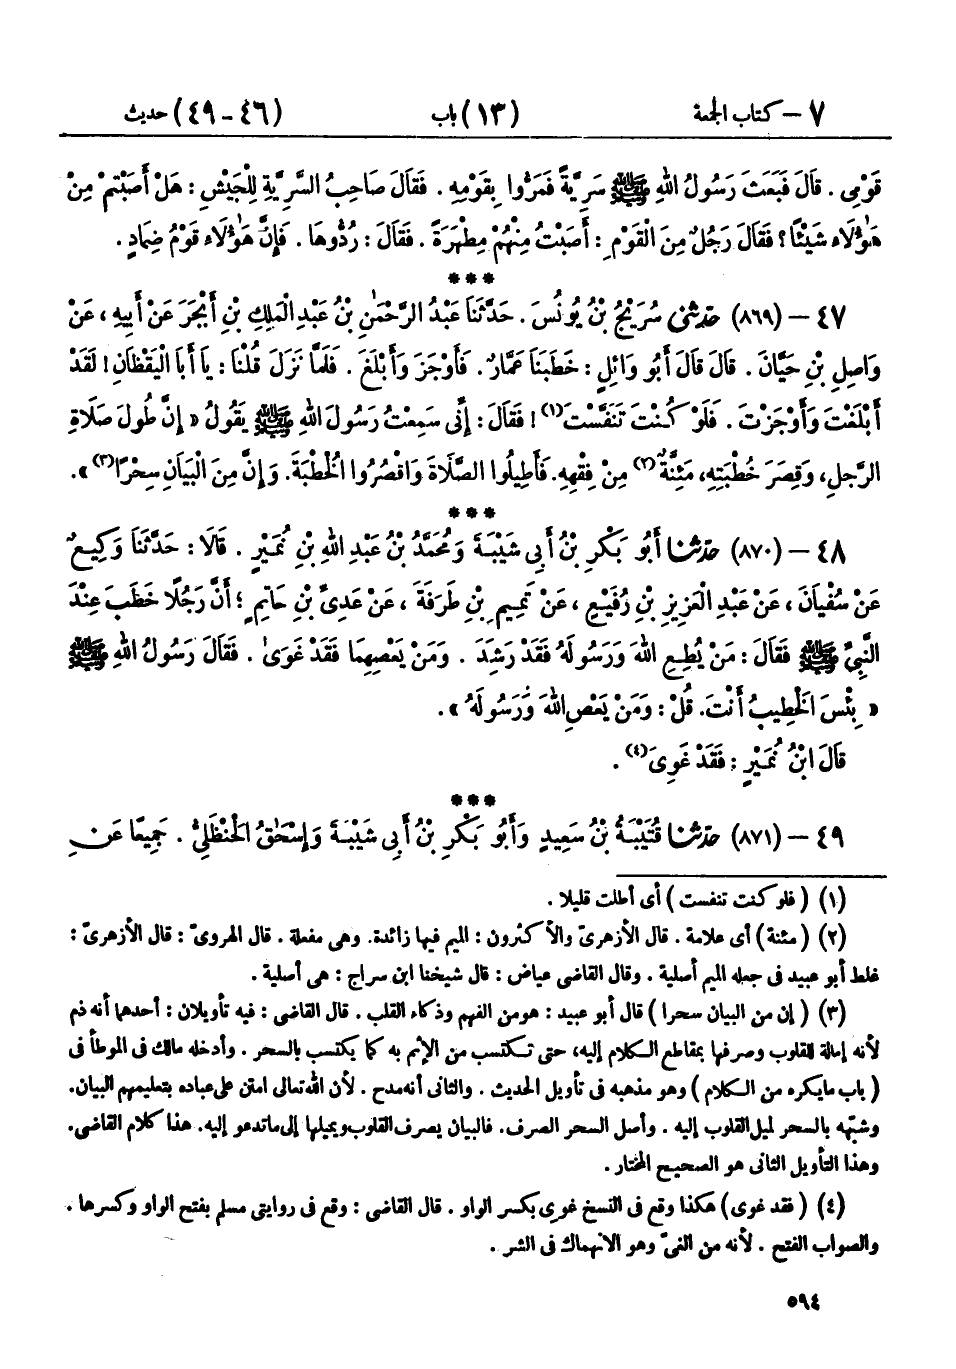 ٧ – كتاب الجمعة (١٣) باب (٤٦ – ٤٩) حديث
قَوْمِى . قَالَ فَبَعَثَ رَسُولُ اللهِ ﷺ سَرِيَّةً فَمَرُّوا بِقَوْمِهِ . فَقَالَ صَاحِبُ السَّرِيَّةِ لِلْجَيْشِ : هَلْ أَصَبْتُمْ مِنْ
هَؤُلَاءِ شَيْئًا ؟ فَقَالَ رَجُلٌ مِنَ الْقَوْمِ : أَصَبْتُ مِنْهُمْ مِطْهَرَةً . فَقَالَ : رُدُّوهَا . فَإِنَّ هَؤُلَاءِ قَوْمُ ضِمَادٍ .
***
٤٧ – (٨٦٩) حَدَّثَنِى سُرَيْجُ بْنُ يُونُسَ . حَدَّثَنَا عَبْدُ الرَّحْمَنِ بْنُ عَبْدِ الْمَلِكِ بْنِ أَبْجَرَ عَنْ أَبِيهِ ، عَنْ
وَاصِلِ بْنِ حَيَّانَ . قَالَ قَالَ أَبُو وَائِلٍ : خَطَبَنَا عَمَّارٌ . فَأَوْجَزَ وَأَبْلَغَ . فَلَمَّا نَزَلَ قُلْنَا : يَا أَبَا الْيَقْظَانِ ! لَقَدْ
أَبْلَغْتَ وَأَوْجَزْتَ . فَلَوْ كُنْتَ تَنَفَّسْتَ (١) ! فَقَالَ : إِنِّى سَمِعْتُ رَسُولَ اللهِ ﷺ يَقُولُ « إِنَّ طُولَ صَلَاةِ
الرَّجُلِ ، وَقِصَرَ خُطْبَتِهِ ، مَئِنَّةٌ (٢) مِنْ فِقْهِهِ . فَأَطِيلُوا الصَّلَاةَ وَاقْصُرُوا الْخُطْبَةَ . وَإِنَّ مِنَ الْبَيَانِ سِحْرًا (٣) » .
***
٤٨ – (٨٧٠) حَدَّثَنَا أَبُو بَكْرِ بْنُ أَبِى شَيْبَةَ وَمُحَمَّدُ بْنُ عَبْدِ اللهِ بْنِ نُمَيْرٍ . قَالَا : حَدَّثَنَا وَكِيعٌ
عَنْ سُفْيَانَ ، عَنْ عَبْدِ الْعَزِيزِ بْنِ رُفَيْعٍ ، عَنْ تَمِيمِ بْنِ طَرَفَةَ ، عَنْ عَدِىِّ بْنِ حَاتِمٍ ؛ أَنَّ رَجُلًا خَطَبَ عِنْدَ
النَّبِىِّ ﷺ فَقَالَ : مَنْ يُطِعِ اللهَ وَرَسُولَهُ فَقَدْ رَشِدَ . وَمَنْ يَعْصِهِمَا فَقَدْ غَوَىٰ . فَقَالَ رَسُولُ اللهِ ﷺ
« بِئْسَ الْخَطِيبُ أَنْتَ . قُلْ : وَمَنْ يَعْصِ اللهَ وَرَسُولَهُ » .
قَالَ ابْنُ نُمَيْرٍ : فَقَدْ غَوِىَ (٤) .
***
٤٩ – (٨٧١) حَدَّثَنَا قُتَيْبَةُ بْنُ سَعِيدٍ وَأَبُو بَكْرِ بْنُ أَبِى شَيْبَةَ وَإِسْحَاقُ الْحَنْظَلِىُّ . جَمِيعًا عَنِ
(١) ( فلو كنت تنفست ) أى أطلت قليلا .
(٢) ( مئنة ) أى علامة . قال الأزهرىّ والأكثرون : الميم فيها زائدة . وهى مفعلة . قال الهروىّ : قال الأزهرىّ :
غلط أبو عبيد فى جعله الميم أصلية . وقال القاضى عياض : قال شيخنا ابن سراج : هى أصلية .
(٣) ( إن من البيان سحرا ) قال أبو عبيد : هو من الفهم وذكاء القلب . قال القاضى : فيه تأويلان : أحدهما أنه ذم
لأنه إمالة القلوب وصرفها بمقاطع الكلام إليه ، حتى تكتسب من الإثم به كما يكتسب بالسحر . وأدخله مالك فى الموطأ فى
( باب ما يكره من الكلام ) وهو مذهبه فى تأويل الحديث . والثانى أنه مدح . لأن الله تعالى امتن على عباده بتعليمهم البيان .
وشبّهه بالسحر لميل القلوب إليه . وأصل السحر الصرف . فالبيان يصرف القلوب ويميلها إلى ما تدعو إليه . هذا كلام القاضى .
وهذا التأويل الثانى هو الصحيح المختار .
(٤) ( فقد غوى ) هكذا وقع فى النسخ غوى بكسر الواو . قال القاضى : وقع فى روايتى مسلم بفتح الواو وكسرها .
والصواب الفتح . لأنه من الغىّ وهو الانهماك فى الشر .
٥٩٤